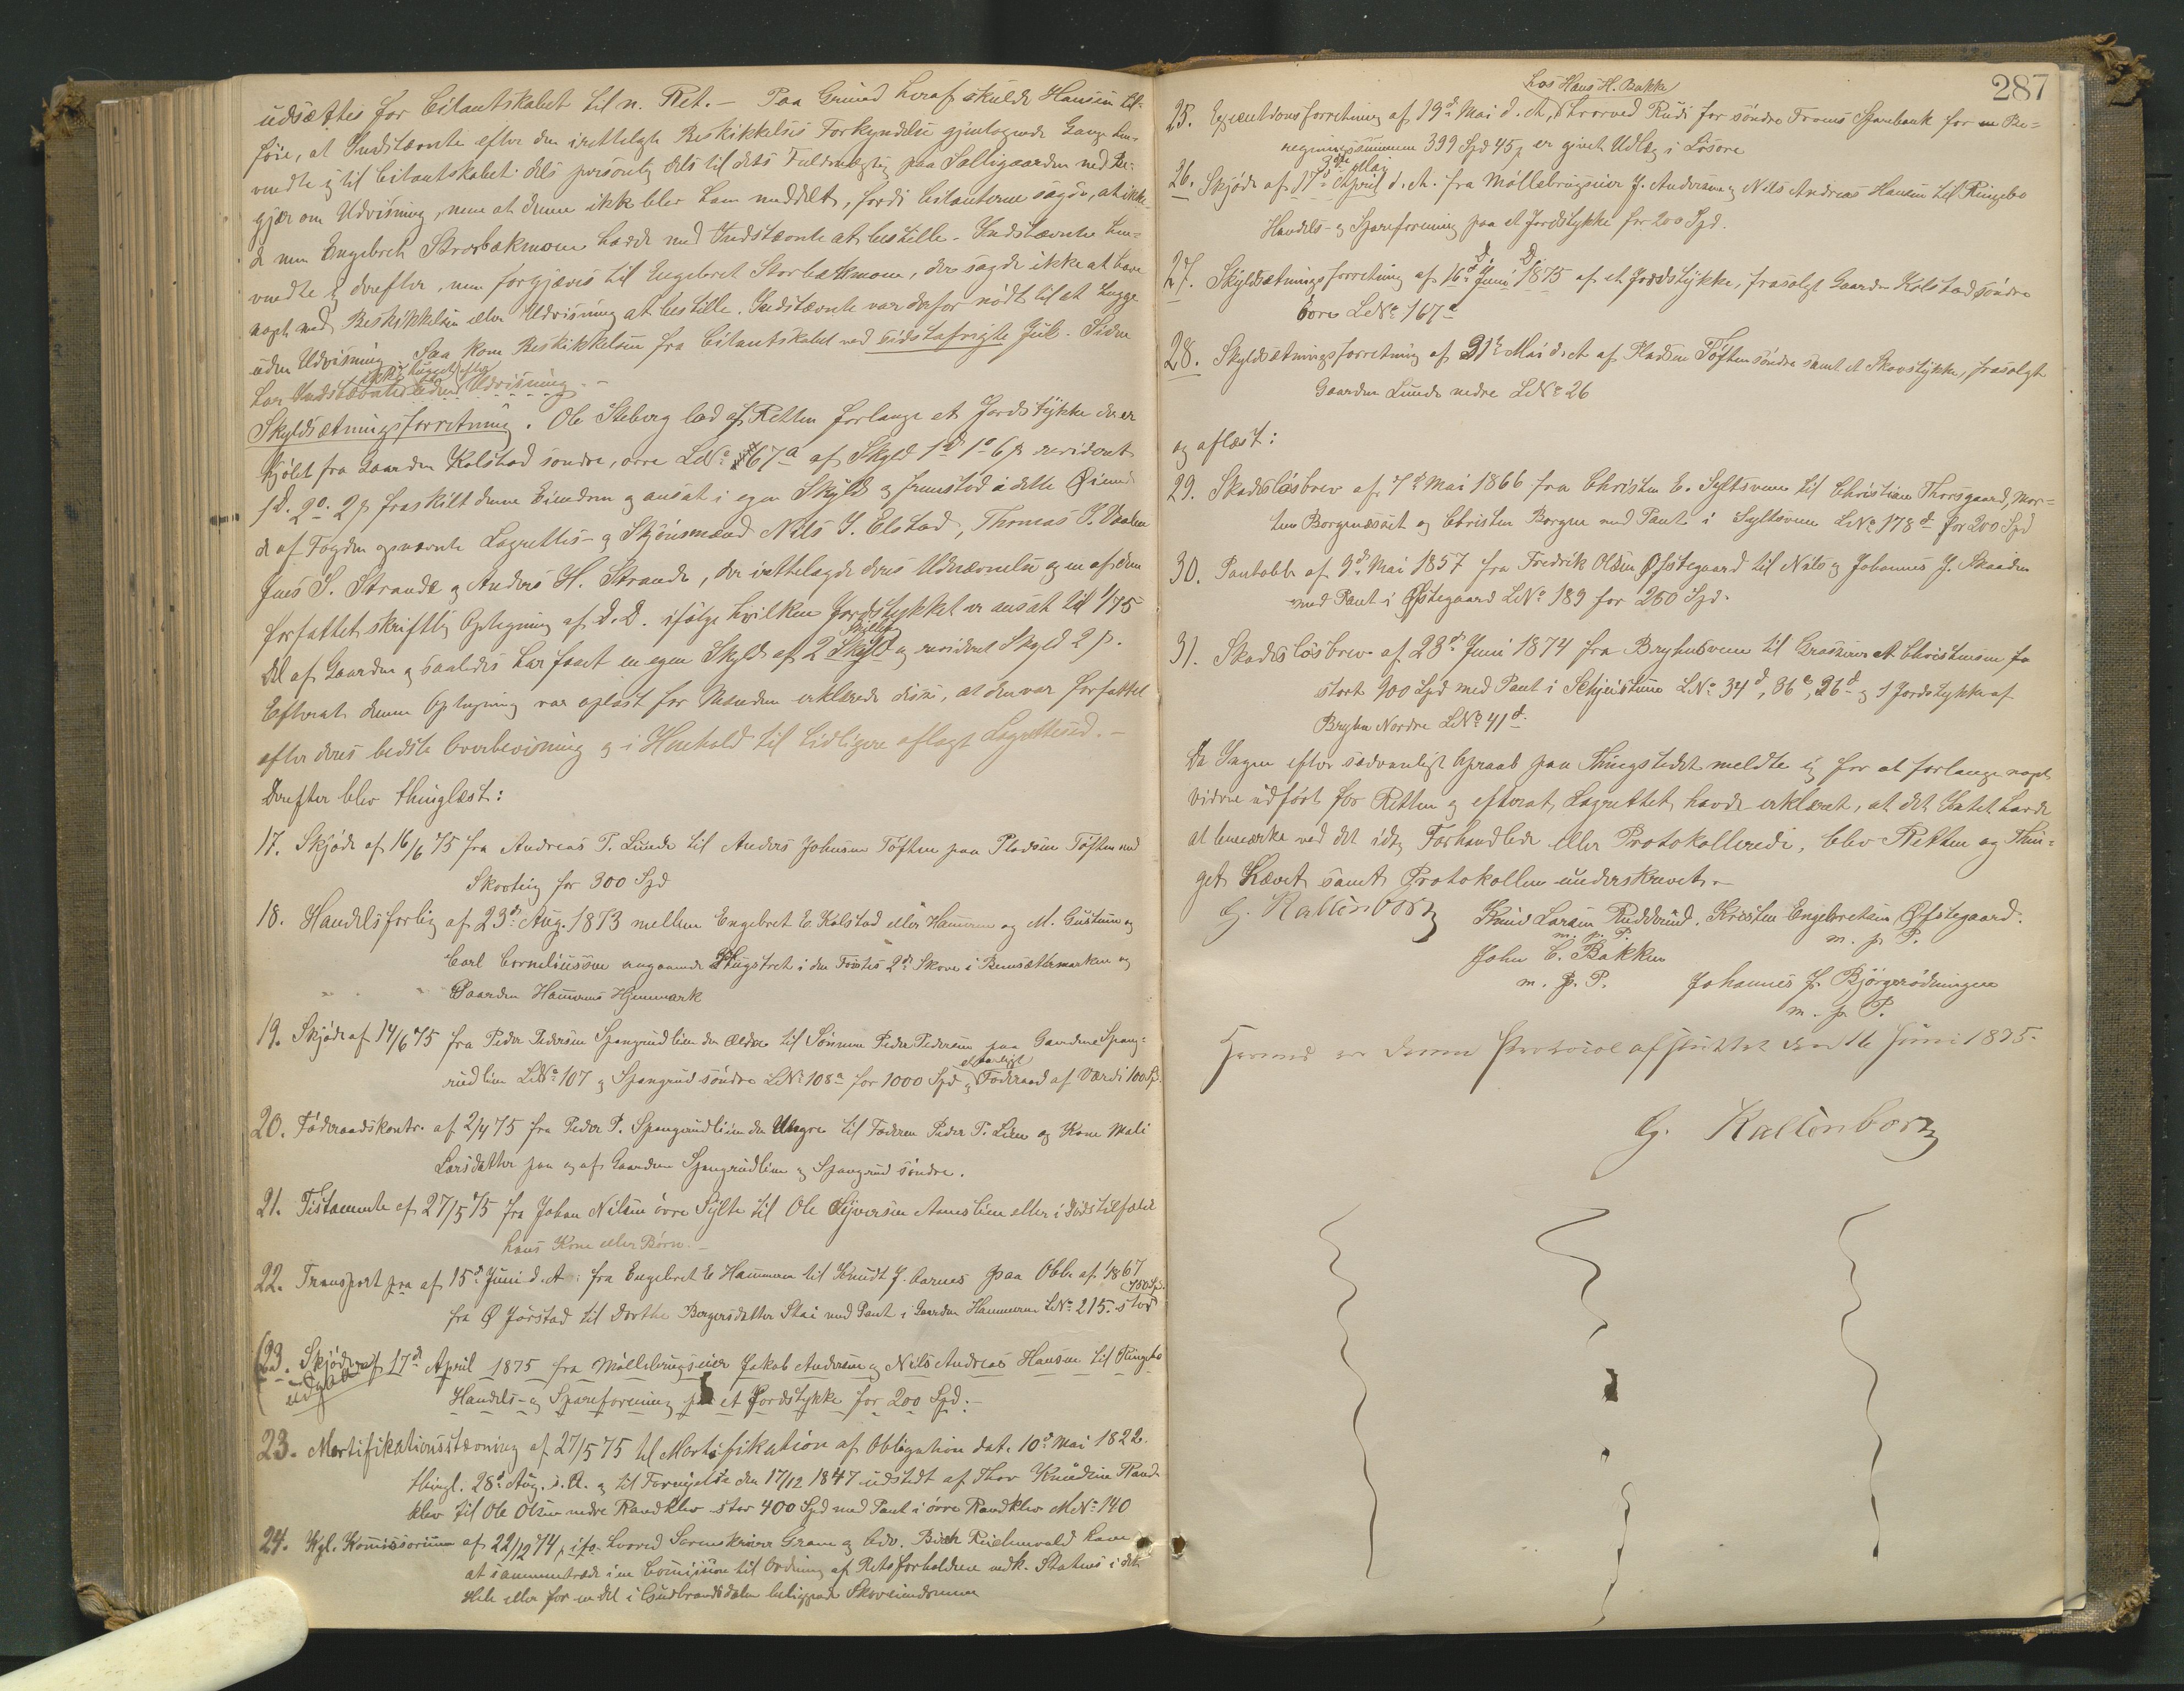 udsættes for Citantskabet til n. Ret. – Paa Grund heraf skulde Hansen til-
føie, at Indstævnte efter den irettelagte Beskikkelses Forkyndelse gjentagende Gange hen-
vendte sig til Citantskabet dels personlig dels til dets Fuldmægtig paa Selliegaarden med Be-
gjær om Udvisning, men at denne ikke blev ham meddelt, fordi Citanterne sagde, at ikke
de men Engebret Storbækmoen havde med Indstævnte at bestille. Indstævnte hen-
vendte sig derefter, men forgjæves til Engebret Storbækmoen, der sagde ikke at have
noget med Beskikkelsen eller Udvisning at bestille. Indstævnte var derfor nødt til at hugge
uden Udvisning. Saa kom Beskikkelsen fra Citantskabet ved sidstafvigte Jul. Siden
har Indstævnte ikke hugget efter uden Udvisning. –
Skyldsætningsforretning. Ole Steberg lod af Retten forlange et Jordstykke der er
kjøbt fra Gaarden Kolstad søndre, øvre LNo 167a af Skyld 1d 1o 6ß revideret
1d. 2o. 2ß fraskilt denne Eiendom og ansat i egen Skyld og fremstod i dette Øiemed
de af Fogden opnævnte Lagrettes- og Skjønsmænd Nils J. Elstad, Thomas J. Vaalen
Jens S. Strande og Anders H. Strande, der irettelagde deres Udnævnelse og en af dem
forfattet skriftlig Optegning af d. D. ifølge hvilken Jordstykket er ansat til 1/75
Del af Gaarden og saaledes har faaet en egen Skyld af 2 Skilling Skyld og revideret Skyld 2ß.
Efterat denne Optegning var oplæst for Mændene erklærede disse, at den var forfattet
efter deres bedste Overbevisning og i Henhold til tidligere aflagt Lagrettesed. –
Derefter blev thinglæst:
17. Skjøde af 16/6 75 fra Andreas P. Lunde til Anders Johnsen Tøften paa Pladsen Tøften med
Skovteig for 300 Spd
18. Handelsforlig af 23d Aug. 1873 mellem Engebret E. Kolstad eller Hammeren og M. Gustum og
Carl Corneliussen angaaende Hugstret i den Førstes 2de Skove i Bensættermarken og
Gaarden Hammerens Hjemmark
19. Skjøde af 14/6 75 fra Peder Pedersen Spangrudlien den Ældre til Sønnen Peder Pedersen paa Gaardene Spang-
rudlien LNo 107 og Spangrud søndre LNo 108a for 1000 Spd og aarligt Føderaad af Værdi 100 Sp.
20. Føderaadskontr. af 2/4 75 fra Peder P. Spangrudlien den Yngre til Faderen Peder P. Lien og Kone Mali
Larsdatter paa og af Gaardene Spangrudlien og Spangrud søndre.
21. Testamente af 27/5 75 fra Johan Nilsen øvre Sylte til Ole Syversen Aameslien eller i Dødstilfælde
hans Kone eller Børn. –
22. Transport paa af 15d Juni d. A. fra Engebret E Hammeren til Knudt J. Aarnes paa Obl. af 1867
fra Ø Jørstad til Dorthe Bergersdatter Skai med Pant i Gaarden Hammeren LNo 215. stor 750 Sp.
(23. Skjøde af 17d April 1875 fra Møllebrugseier Jakob Andersen og Nils Andreas Hansen til Ringebo
udgaar
Handels- og Spareforening paa et Jordstykke for 200 Spd. –
23. Mortifikationsstævning af 27/5 75 til Mortifikation af Obligation dat. 10d Mai 1822.
thingl. 28d Aug. s. A. og til Fornyelse den 17/12 1847 udstedt af Thor Knudsen Rand-
klev til Ole Olsen nedre Randklev stor 400 Spd med Pant i øvre Randklev MNo 140
24. Kgl. Kommissorium af 22/12 74, ifo hvorved Sorenskriver Gram og Adv. Birch Reichenwald have
at sammentræde i en Comission til Ordning af Retsforholdene vedk. Statens i det
Hele eller for en del i Gudbrandsdalen beliggende Skoveiendomme
287
hos Hans H. Bakke
25. Executionsforretning af 19d Mai d. A, hvorved Rudi for søndre Frons Sparebank for en Be-
regningssummen 399 Spd 45ß er givet Udlæg i Løsøre
3die Mai
26. Skjøde af 17d April d. A. fra Møllebrugseier J. Andersen og Nils Andreas Hansen til Ringebo
Handels- og Spareforening paa et Jordstykke for 200 Spd.
d. D.
27. Skyldsætningsforretning af 16d Juni 1875 af et Jordstykke, frasolgt Gaarden Kolstad søndre
øvre LNo 167a
28. Skyldsætningsforretning af 31te Mai d. A af Pladsen Tøften søndre samt et Skovstykke, frasolgt
Gaarden Lunde nedre LNo 26
og aflæst:
29. Skadesløsbrev af 7d Mai 1866 fra Christen E. Syltsveen til Christian Thorsgaard, Mor-
ten Borgenæseiet og Christen Borgen med Pant i Syltsveen LNo 178d for 200 Spd
30. Pantobl. af 9d Mai 1857 fra Fredrik Olsen Øfstegaard til Nils og Johannes J. Skaaden
med Pant i Øfstegaard LNo 189 for 250 Spd.
31. Skadesløsbrev af 23d Juni 1874 fra Bryhnsveen til Grosserer A Christensen fo
stort 900 Spd med Pant i Schjeistuen LNo 34d, 36c, 26d og 1 Jordstykke af
Bryhn Nordre LNo 41d.
Da Ingen efter sædvanligt Opraab paa Thingstedet meldte sig for at forlange noget
videre udført for Retten og efterat Lagrettet havde erklæret, at det Intet havde
at bemærke ved det idag Forhandlede eller Protokollerede, blev Retten og Thin-
get hævet samt Protokollen underskrevet. –
G. Kaltenborn Knud Larsen Rudsrud. Kristen Engebretsen Øfstegaard.
m. p. P. m. p. P.
John C. Bakken
m. p. P. Johannes J. Bjørgerødningen
m. p. P.
Hermed er denne Protocol afsluttet den 16 Juni 1875.
G. Kaltenborn